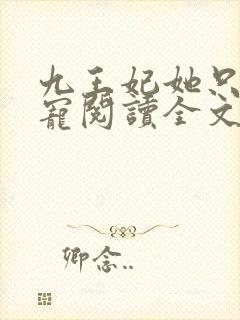 九王妃她只
寵閱讀全文
卿念..